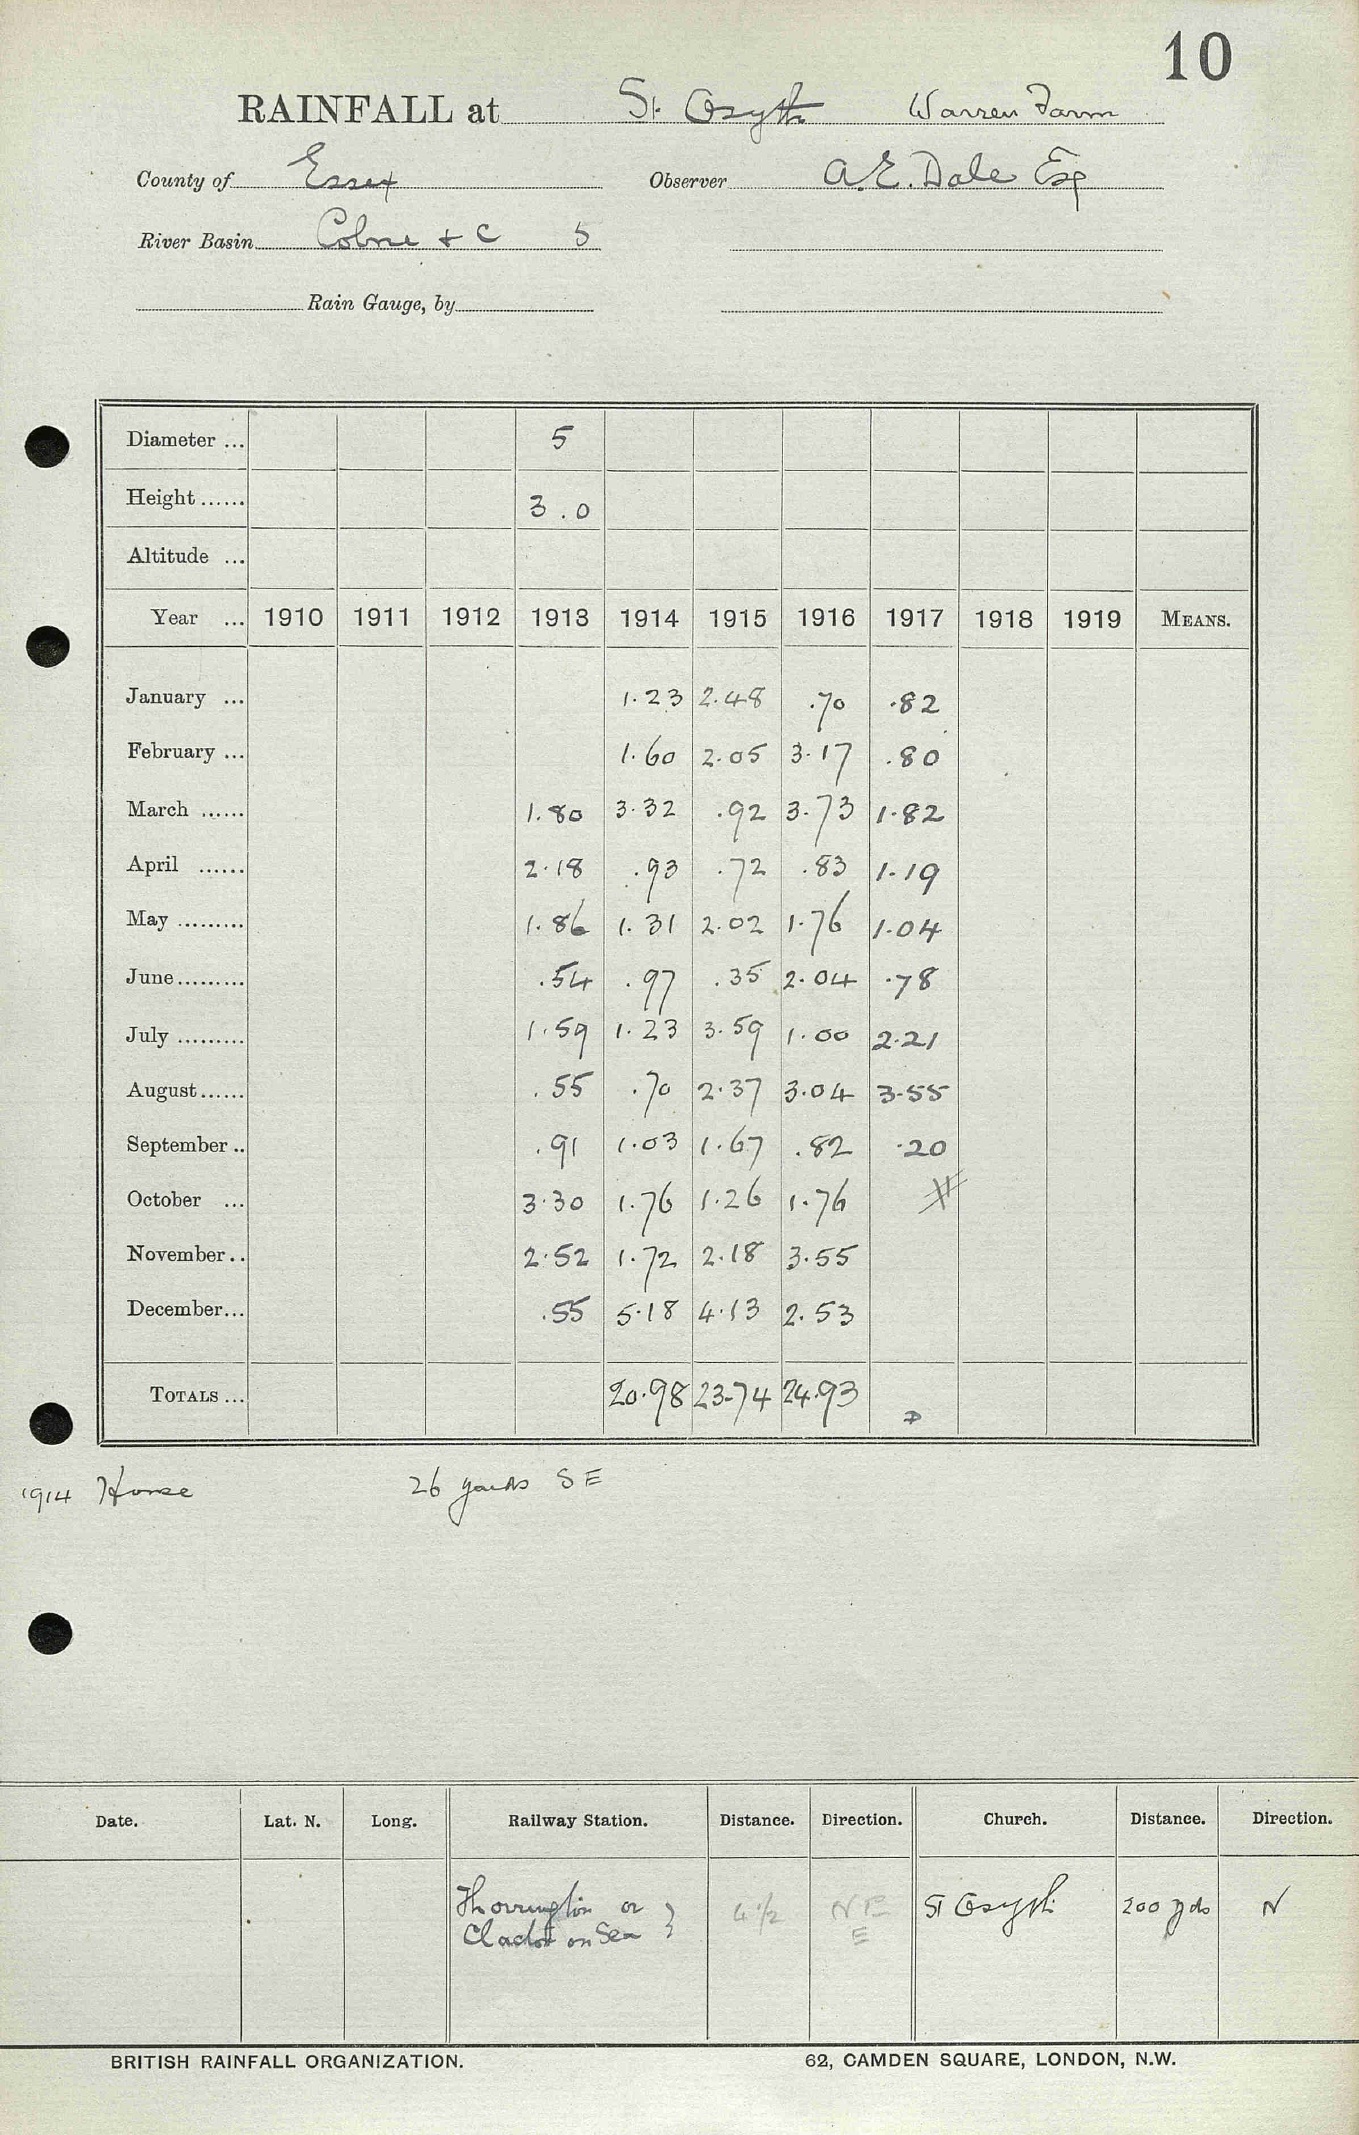 10
RAINFALL at St Osyth Warren Farm
County of Essex Observer A.E. Dale Esq
River Basin Colne & C 5
Rain Gauge, by
Diameter ... 5
Height ...... 3.0
Altitude ...
Year ... 1910 1911 1912 1913 1914 1915 1916 1917 1918 1919 MEANS.
January ... 1.23 2.48 .70 .82
February ... 1.60 2.05 3.17 .80
March ...... 1.80 3.32 .92 3.73 1.82
April ...... 2.18 .93 .72 .83 1.19
May ......... 1.86 1.31 2.02 1.76 1.04
June ......... .54 .97 .35 2.04 .78
July ......... 1.59 1.23 3.59 1.00 2.21
August ...... .55 .70 2.37 3.04 3.55
September .. .91 1.03 1.67 .82 .20
October ... 3.30 1.76 1.26 1.76
November .. 2.52 1.72 2.18 3.55
December ... .55 5.18 4.13 2.53
TOTALS ... 20.98 23.74 24.93
1914 House 26 yards SE
Date. Lat. N. Long. Railway Station. Distance. Direction. Church. Distance. Direction.
Thorrington or 4½ NE St Osyth 200 yds N
Clacton on Sea } E
BRITISH RAINFALL ORGANIZATION. 62, CAMDEN SQUARE, LONDON, N.W.